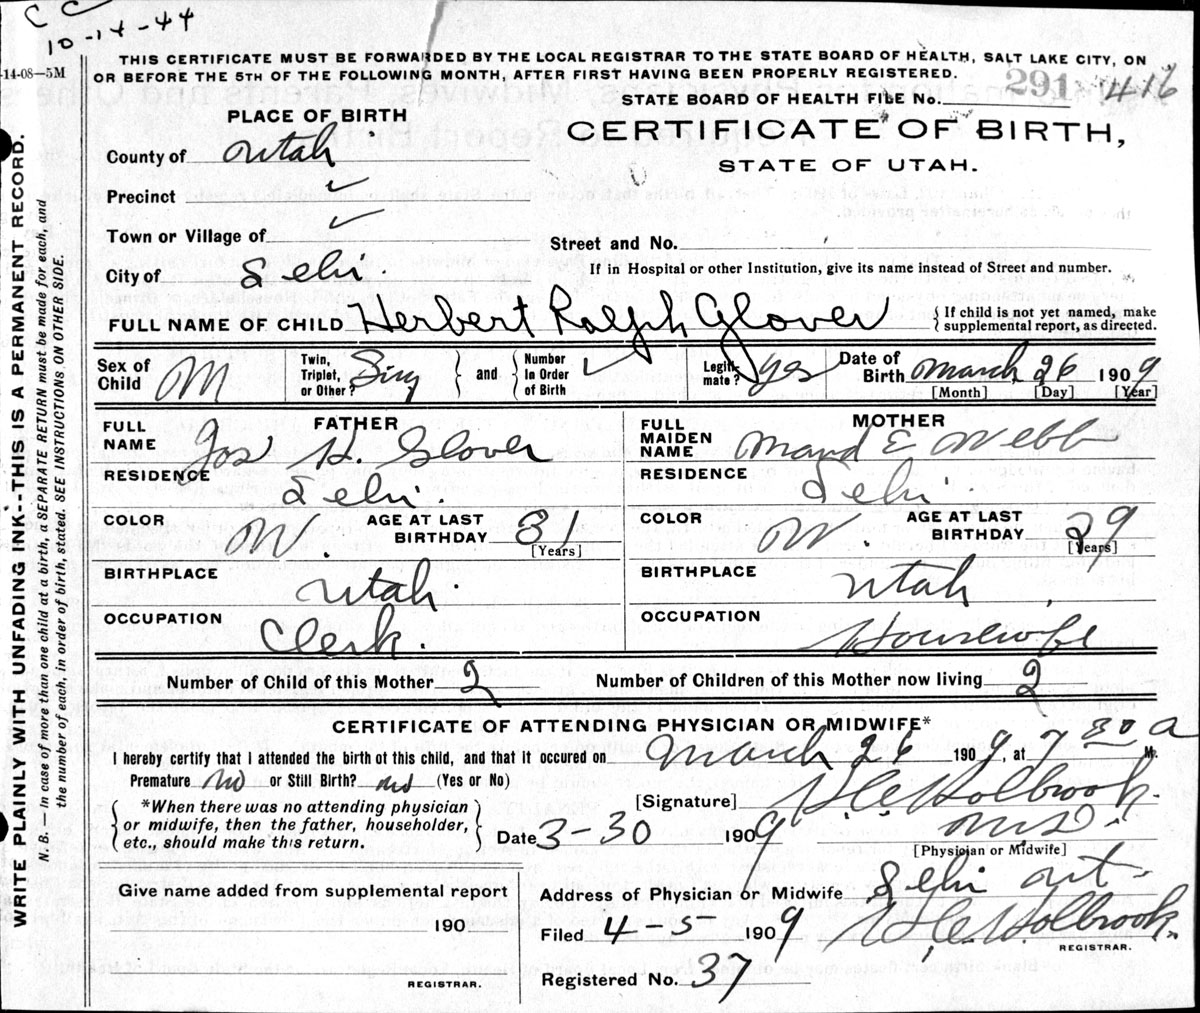 C C
10-14-44
-14-08—5M
THIS CERTIFICATE MUST BE FORWARDED BY THE LOCAL REGISTRAR TO THE STATE BOARD OF HEALTH, SALT LAKE CITY, ON
OR BEFORE THE 5TH OF THE FOLLOWING MONTH, AFTER FIRST HAVING BEEN PROPERLY REGISTERED.
STATE BOARD OF HEALTH FILE No. 291 416
PLACE OF BIRTH
CERTIFICATE OF BIRTH,
STATE OF UTAH.
County of Utah
Precinct ✓
Town or Village of ✓
Street and No.
City of Lehi.
If in Hospital or other Institution, give its name instead of Street and number.
FULL NAME OF CHILD Herbert Ralph Glover { If child is not yet named, make supplemental report, as directed.
Sex of Child M Twin, Triplet, or Other? Sing } and { Number In Order of Birth ✓ Legitimate? yes Date of Birth March 26 1909
[Month] [Day] [Year]
FATHER MOTHER
FULL NAME Jos H. Glover FULL MAIDEN NAME Maud E Webb
RESIDENCE Lehi. RESIDENCE Lehi.
COLOR W. AGE AT LAST BIRTHDAY 31 [Years] COLOR W. AGE AT LAST BIRTHDAY 29 [Years]
BIRTHPLACE Utah. BIRTHPLACE Utah
OCCUPATION Clerk. OCCUPATION Housewife
Number of Child of this Mother 2 Number of Children of this Mother now living 2
CERTIFICATE OF ATTENDING PHYSICIAN OR MIDWIFE*
I hereby certify that I attended the birth of this child, and that it occured on March 26 1909, at 7 30 a M.
Premature No or Still Birth? no (Yes or No)
[Signature] Holbrook.
{ *When there was no attending physician
or midwife, then the father, householder,
etc., should make this return. }
Date 3-30 1909 M.D.
[Physician or Midwife]
Give name added from supplemental report
190
REGISTRAR.
Address of Physician or Midwife Lehi Ut-
Filed 4-5 1909 Holbrook.
REGISTRAR.
Registered No. 37
WRITE PLAINLY WITH UNFADING INK--THIS IS A PERMANENT RECORD.
N. B.—In case of more than one child at a birth, a SEPARATE RETURN must be made for each, and
the number of each, in order of birth, stated. SEE INSTRUCTIONS ON OTHER SIDE.